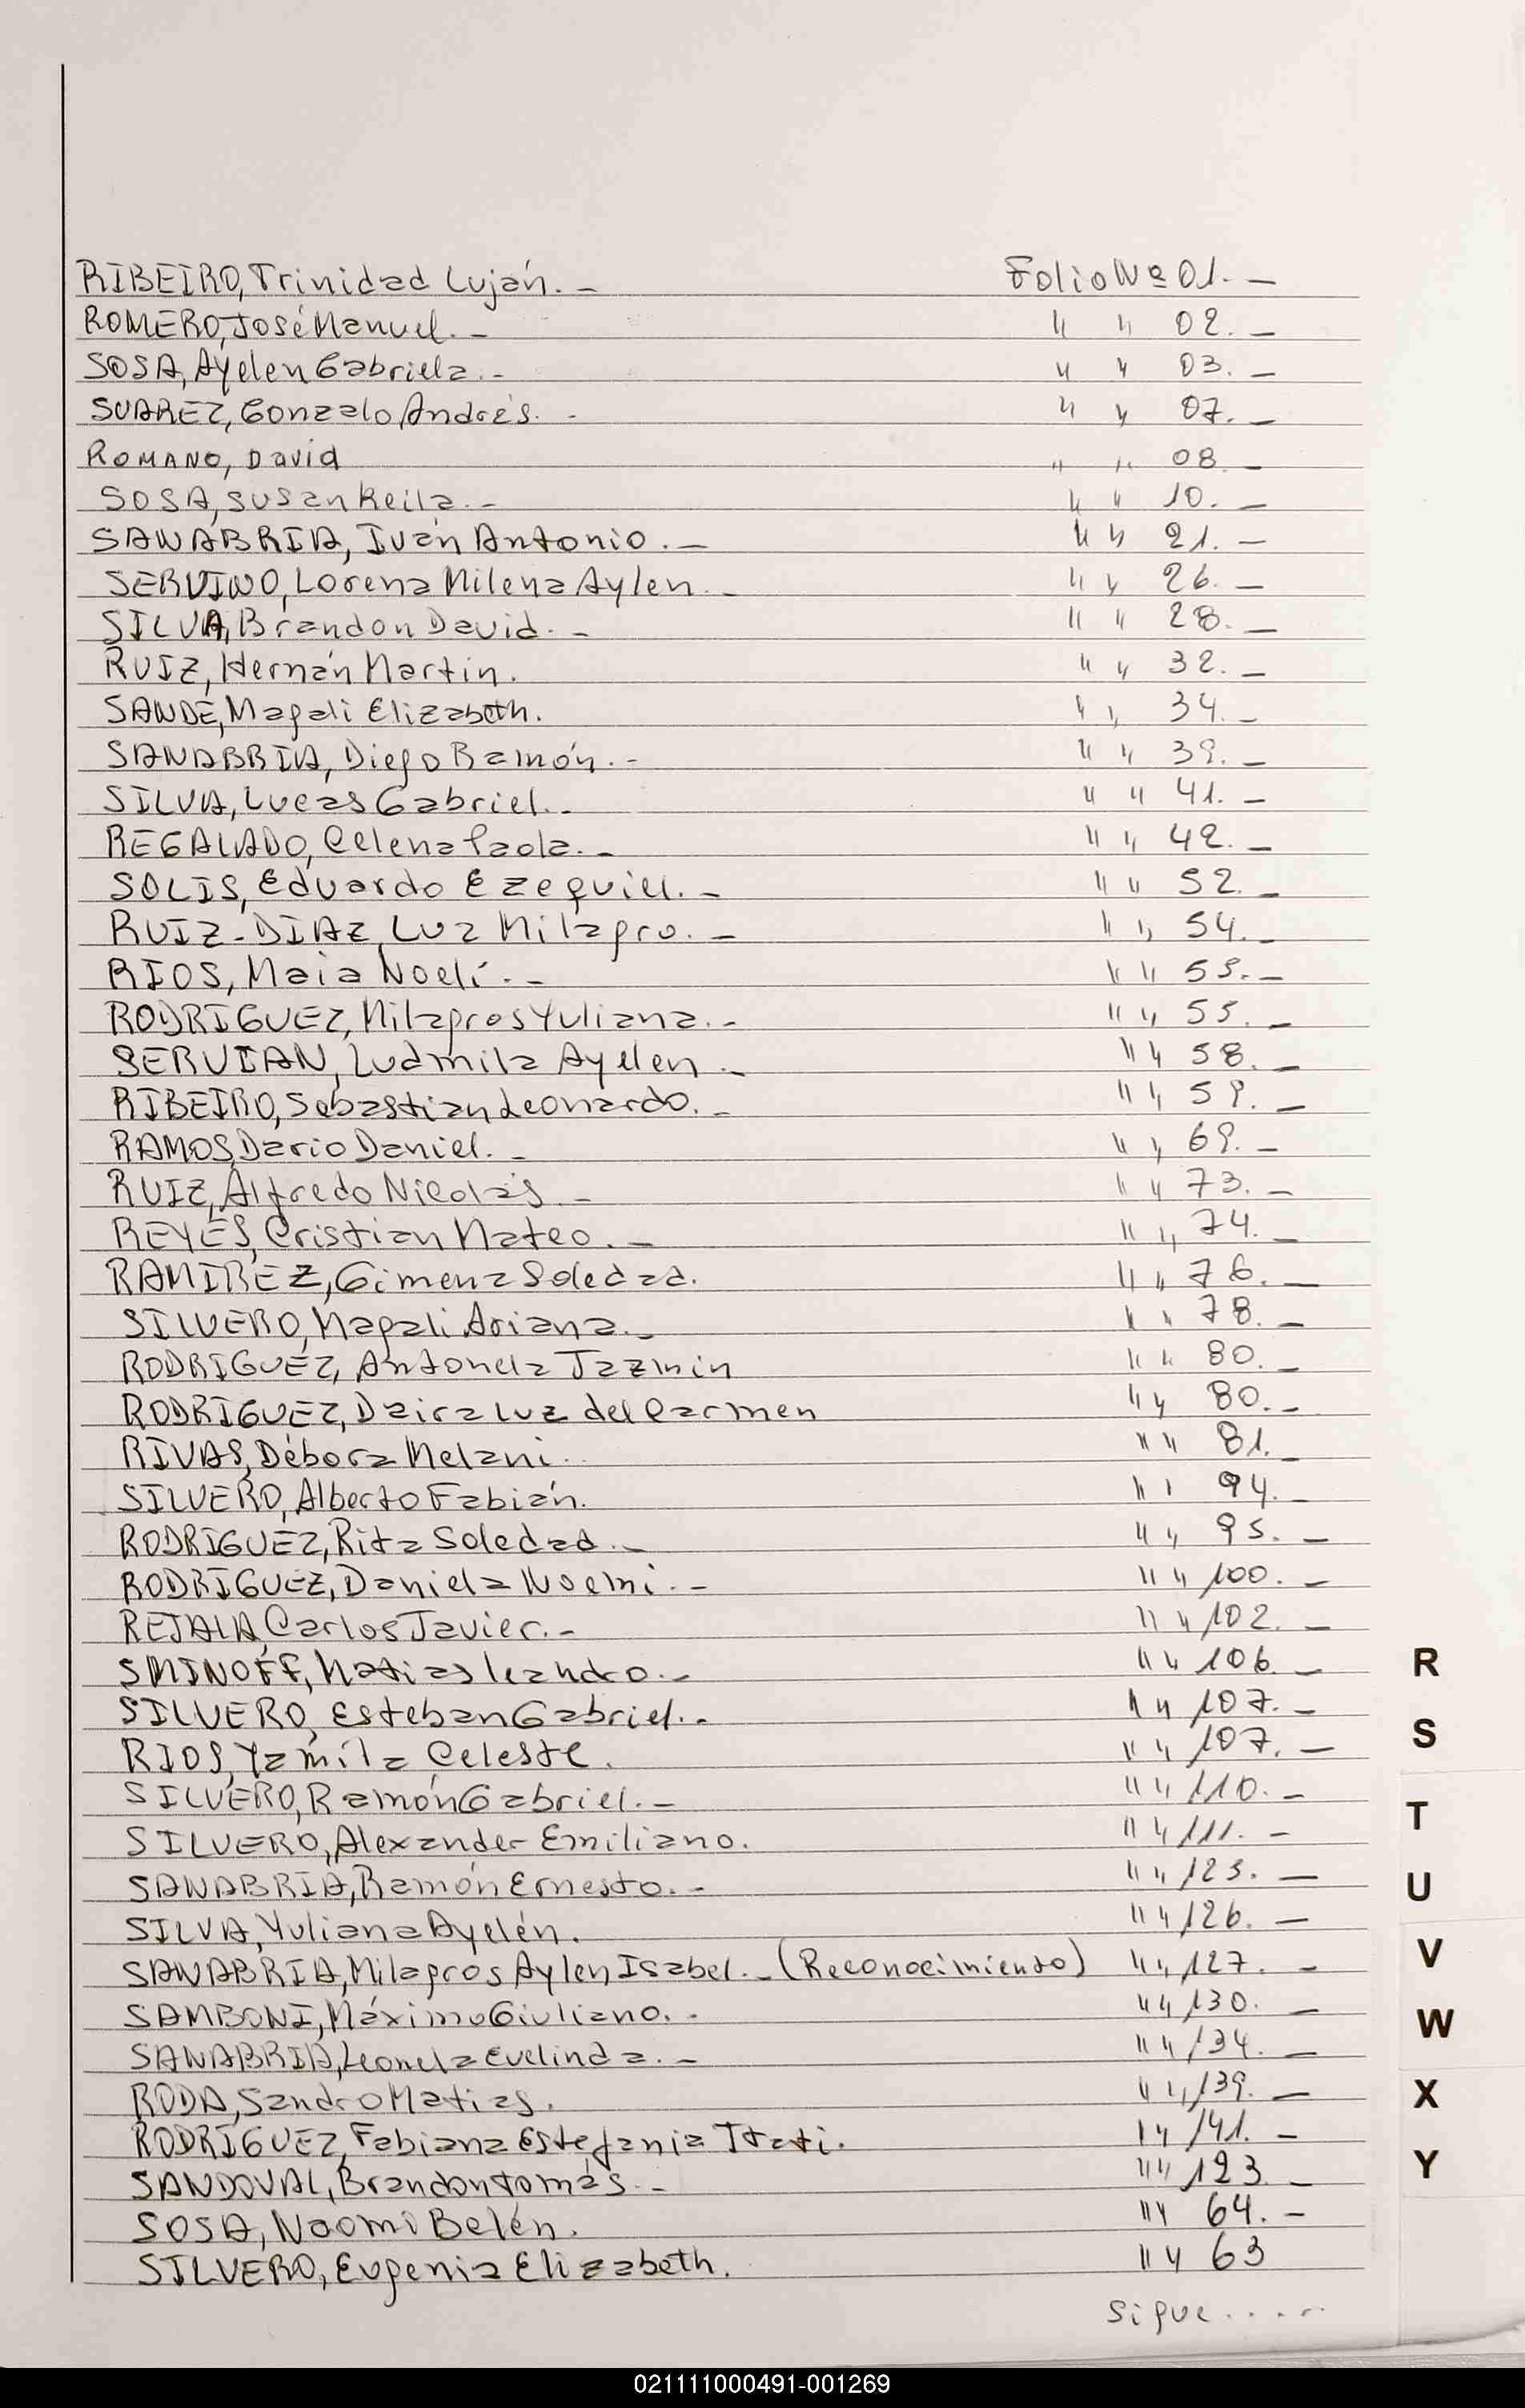 RIBEIRO, Trinidad Luján. - Folio Nº 01. -
ROMERO, José Manuel. - " " 02. -
SOSA, Ayelen Gabriela. - " " 03. -
SUAREZ, Gonzalo Andrés. - " " 07. -
ROMANO, David " " 08 -
SOSA, Susan Keila. - " " 10. -
SANABRIA, Iván Antonio. - " " 21. -
SERVINO, Lorena Milena Aylen. - " " 26. -
SILVA, Brandon David. - " " 28. -
RUIZ, Hernán Martin. " " 32. -
SANDE, Magali Elizabeth. " " 34. -
SANABRIA, Diego Ramón. - " " 39. -
SILVA, Lucas Gabriel. - " " 41. -
REGALADO, Celena Paola. - " " 42. -
SOLIS, Eduardo Ezequiel. - " " 52. -
RUIZ-DIAZ, Luz Milagro. - " " 54. -
RIOS, Maia Noelí. - " " 55. -
RODRIGUEZ, Milagros Yuliana. - " " 55. -
SERVIAN, Ludmila Ayelen - " " 58. -
RIBEIRO, Sebastian Leonardo. - " " 59. -
RAMOS, Dario Daniel. - " " 69. -
RUIZ, Alfredo Nicolás - " " 73. -
REYES, Cristian Mateo. - " " 74. -
RAMIREZ, Gimena Soledad. " " 76. -
SILVERO, Magali Ariana. - " " 78. -
RODRIGUEZ, Antonela Jazmin " " 80. -
RODRIGUEZ, Daira Luz del Carmen " " 80. -
RIVAS, Débora Melani. " " 81. -
SILVERO, Alberto Fabián. " " 94. -
RODRIGUEZ, Rita Soledad. - " " 95. -
RODRIGUEZ, Daniela Noemi. - " " 100. -
REJALA, Carlos Javier. - " " 102. -
SMINOFF, Matias Leandro. - " " 106. -
SILVERO, Esteban Gabriel. - " " 107. -
RIOS, Yamila Celeste. " " 107. -
SILVERO, Ramón Gabriel. - " " 110. -
SILVERO, Alexander Emiliano. " " 111. -
SANABRIA, Ramón Ernesto. - " " 123. -
SILVA, Yuliana Ayelén. " " 126. -
SANABRIA, Milagros Aylen Isabel. - (Reconocimiento) " " 127. -
SAMBONI, Máximo Giuliano. - " " 130. -
SANABRIA, Leonela Evelinda. - " " 134. -
RODA, Sandro Matias. " " 139. -
RODRIGUEZ, Fabiana Estefania Itati. " " 141. -
SANDOVAL, Brandon Tomás. - " " 123. -
SOSA, Naomi Belén. " " 64. -
SILVERO, Eugenia Elizabeth. " " 63
Sigue.....
R
S
T
U
V
W
X
Y
021111000491-001269